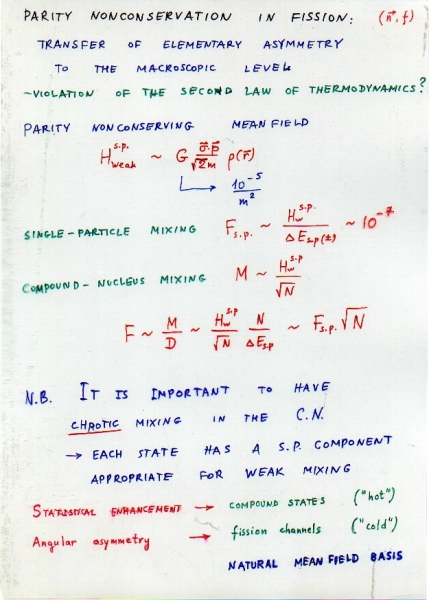 PARITY NONCONSERVATION IN FISSION: (n⃗, f)
TRANSFER OF ELEMENTARY ASYMMETRY
TO THE MACROSCOPIC LEVEL
– VIOLATION OF THE SECOND LAW OF THERMODYNAMICS?
PARITY NONCONSERVING MEAN FIELD
H_weak^{s.p.} ~ G (σ⃗·p⃗)/(√2 m) ρ(r⃗)
↳ 10^{-5}/m^2
SINGLE-PARTICLE MIXING F_{s.p.} ~ H_w^{s.p.}/ΔE_{s.p.(±)} ~ 10^{-7}
COMPOUND-NUCLEUS MIXING M ~ H_w^{s.p}/√N
F ~ M/D ~ H_w^{s.p}/√N N/ΔE_{s.p} ~ F_{s.p.} √N
N.B. IT IS IMPORTANT TO HAVE
CHAOTIC MIXING IN THE C.N.
→ EACH STATE HAS A S.P. COMPONENT
APPROPRIATE FOR WEAK MIXING
STATISTICAL ENHANCEMENT → COMPOUND STATES ("hot")
Angular asymmetry → fission channels ("cold")
NATURAL MEAN FIELD BASIS